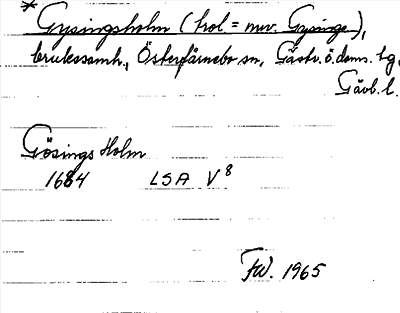 * Gysingsholm (trol = nuv. Gysinge),
brukssamh., Österfärnebo sn, Gästr. ö. doms. hg,
Gävl. l.
Gösings Holm
1684 LSA V⁸
FW. 1965